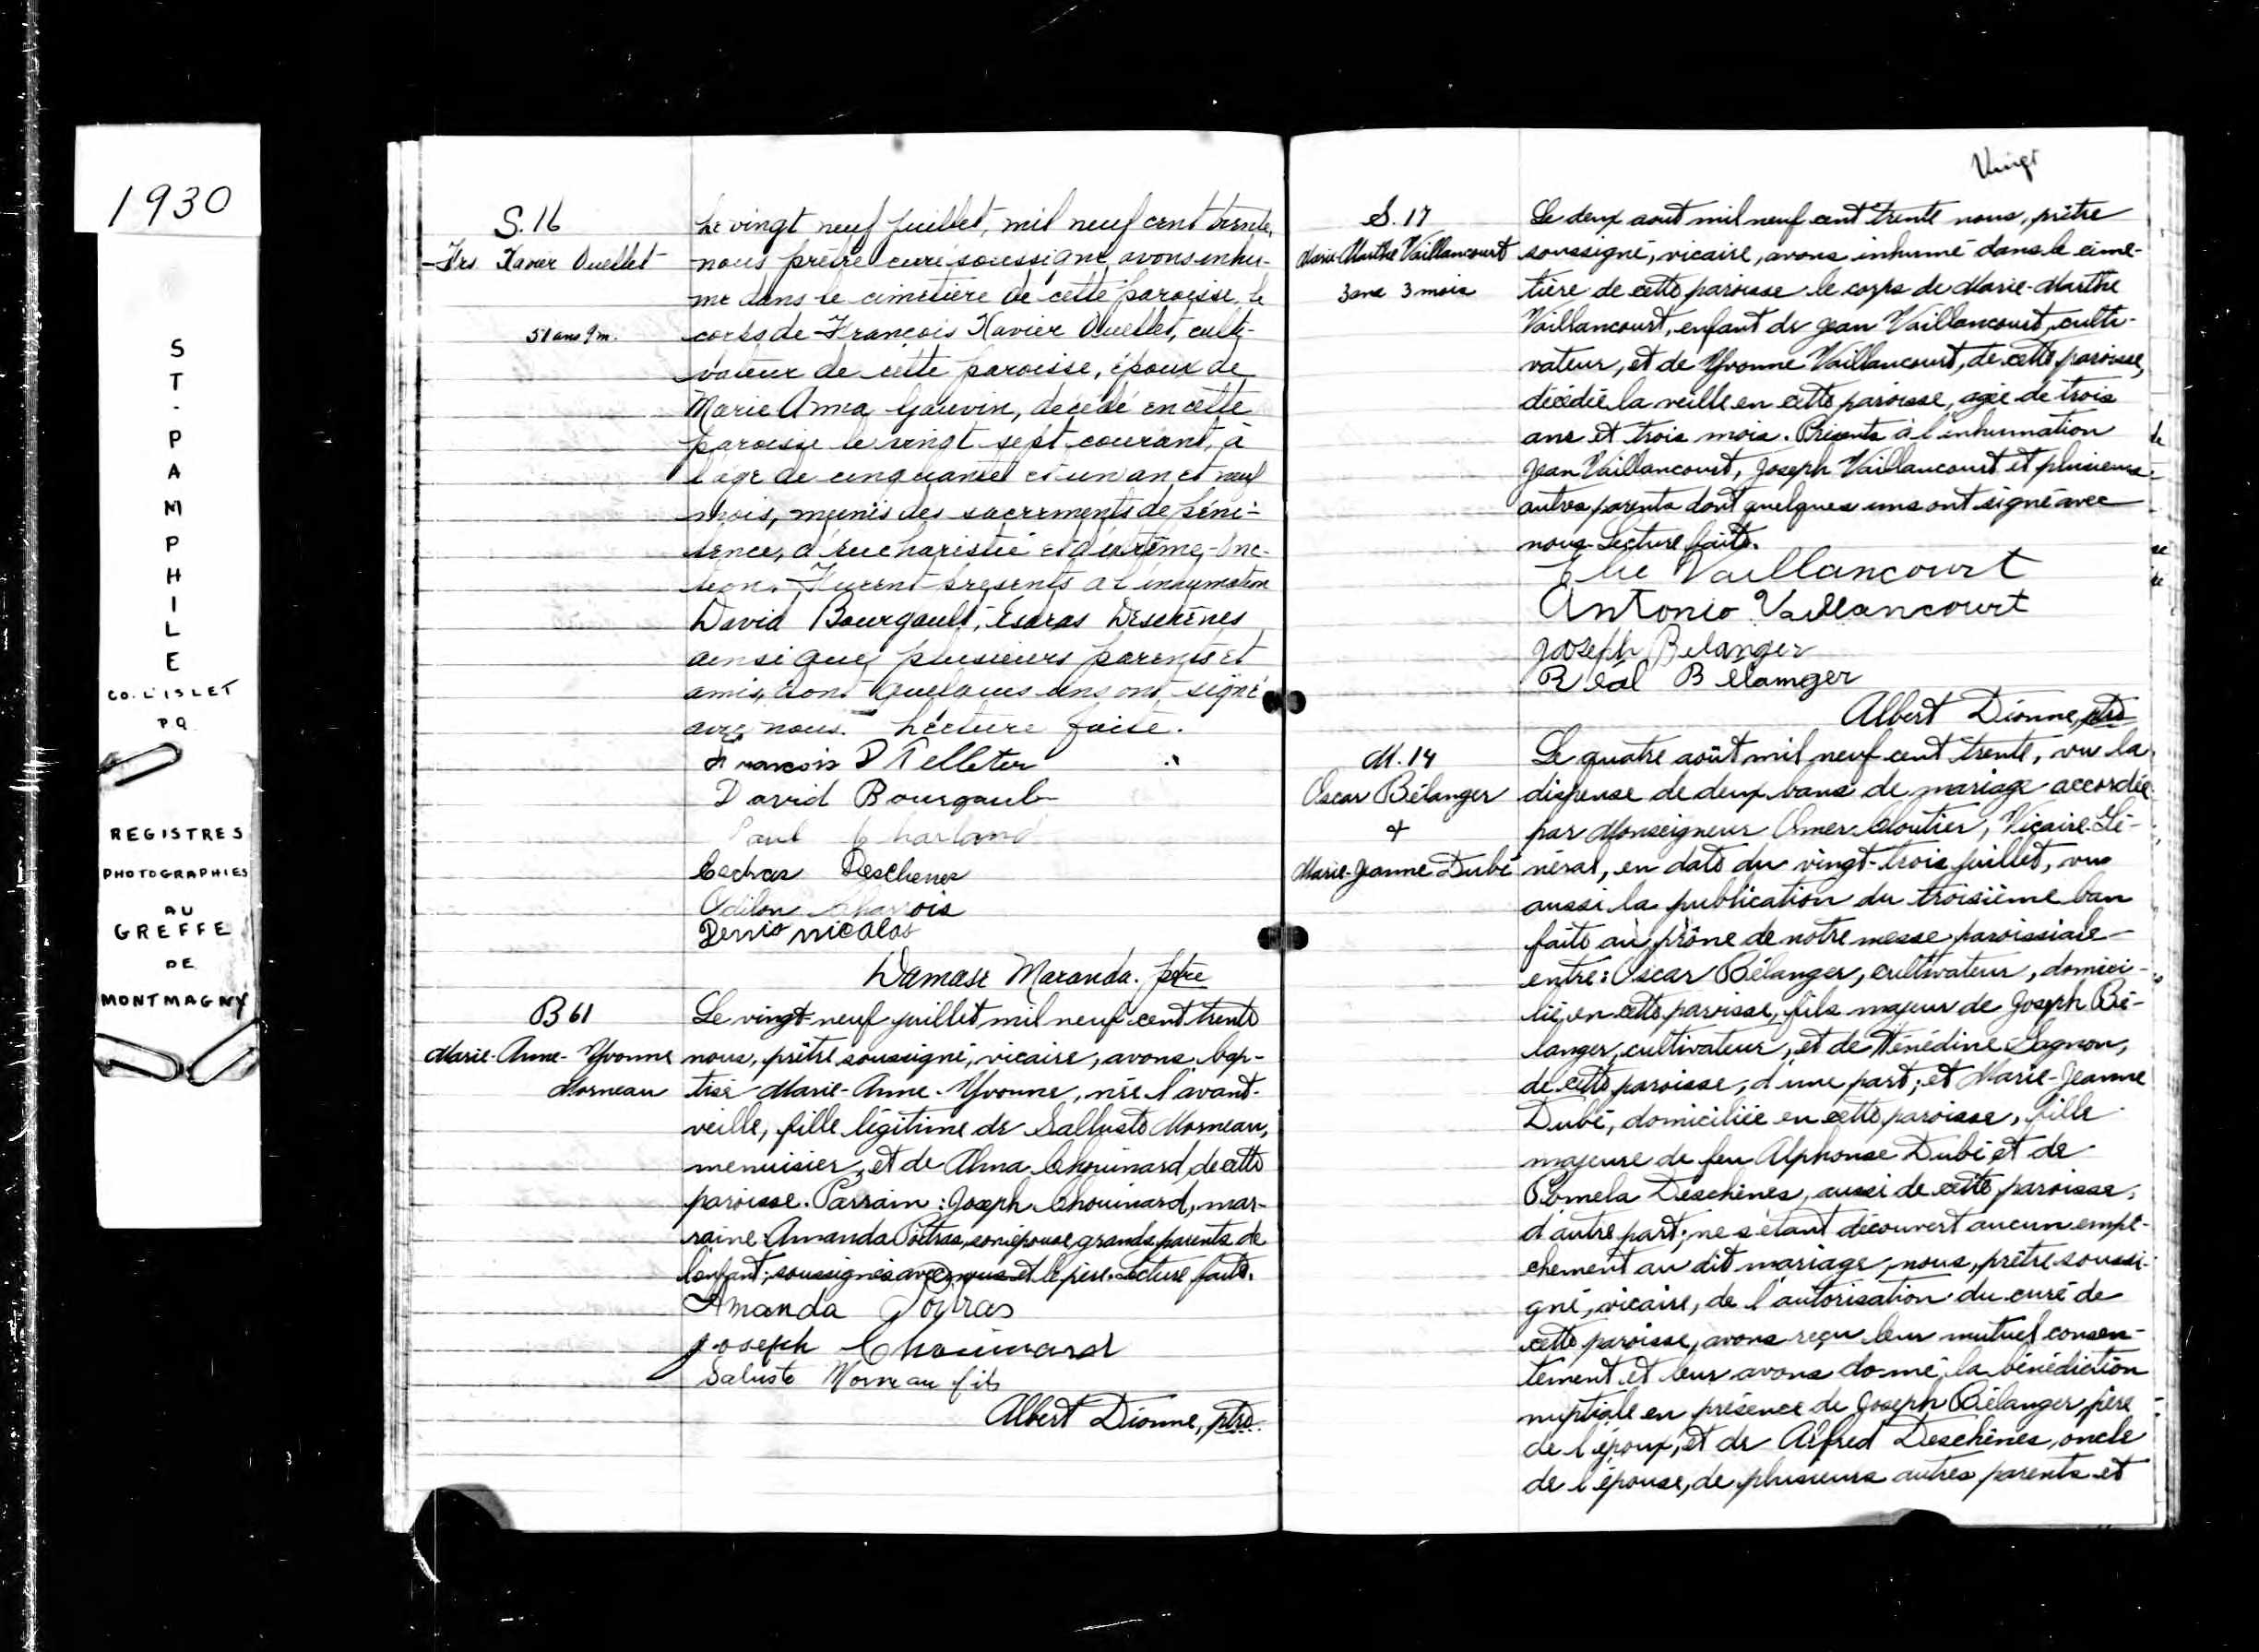 1930
ST-PAMPHILE
CO. L'ISLET
P Q
REGISTRES
PHOTOGRAPHIES
AU
GREFFE
DE
MONTMAGNY
S. 16
Frs. Xavier Ouellet
51 ans 9 m.
Le vingt neuf juillet, mil neuf cent trente,
nous prêtre curé soussigné, avons inhu-
mé dans le cimetière de cette paroisse, le
corps de François Xavier Ouellet, culti-
vateur de cette paroisse, époux de
Marie Anna Gauvin, décédé en cette
paroisse le vingt sept courant, à
l'âge de cinquante et un an et neuf
mois, munis des sacrements de péni-
tence, d'eucharistie et d'extrême-onc-
tion. Furent présents à l'inhumation
David Bourgault, Esdras Deschênes
ainsi que plusieurs parents et
amis, dont quelques uns ont signé
avec nous. Lecture faite.
François P Pelleter
David Bourgault
Paul Charland
Esdras Deschenes
Odilon
Denis nicolas
Damase Maranda. ptre
B 61
Marie-Anne-Yvonne
Morneau
Le vingt-neuf juillet mil neuf cent trente
nous, prêtre soussigné, vicaire, avons bap-
tisé Marie-Anne-Yvonne, née l'avant-
veille, fille légitime de Salluste Morneau,
menuisier, et de Alma Chouinard, de cette
paroisse. Parrain: Joseph Chouinard, mar-
raine Amanda Poitras, son épouse, grands parents de
l'enfant; soussignés avec nous et le père. Lecture faite.
Amanda Poitras
Joseph Chouinard
Saluste Morneau fils
Albert Dionne, ptre
Vingt
S. 17
Marie-Marthe Vaillancourt
3 ans 3 mois
Le deux août mil neuf cent trente nous, prêtre
soussigné, vicaire, avons inhumé dans le cime-
tière de cette paroisse le corps de Marie-Marthe
Vaillancourt, enfant de Jean Vaillancourt, culti-
vateur, et de Yvonne Vaillancourt, de cette paroisse,
décédée la veille en cette paroisse, agée de trois
ans et trois mois. Présents à l'inhumation
Jean Vaillancourt, Joseph Vaillancourt et plusieurs
autres parents dont quelques uns ont signé avec
nous. Lecture faite.
Elie Vaillancourt
Antonio Vaillancourt
Joseph Belanger
Réal Bélanger
Albert Dionne, ptre
M. 14
Oscar Bélanger
&
Marie-Jeanne Dubé
Le quatre août mil neuf cent trente, vu la
dispense de deux bans de mariage accordée
par Monseigneur Omer Cloutier, Vicaire-Gé-
néral, en date du vingt-trois juillet, vu
aussi la publication du troisième ban
faite au prône de notre messe paroissiale
entre: Oscar Bélanger, cultivateur, domici-
lié, en cette paroisse, fils majeur de Joseph Bé-
langer, cultivateur, et de Hénédine Gagnon,
de cette paroisse, d'une part; et Marie-Jeanne
Dubé, domiciliée en cette paroisse, fille
majeure de feu Alphonse Dubé et de
Pomela Deschênes, aussi de cette paroisse,
d'autre part; ne s'étant découvert aucun empê-
chement au dit mariage, nous, prêtre soussi-
gné, vicaire, de l'autorisation du curé de
cette paroisse, avons reçu leur mutuel consen-
tement et leur avons donné la bénédiction
nuptiale en présence de Joseph Bélanger, père
de l'époux, et de Alfred Deschênes, oncle
de l'épouse, de plusieurs autres parents et